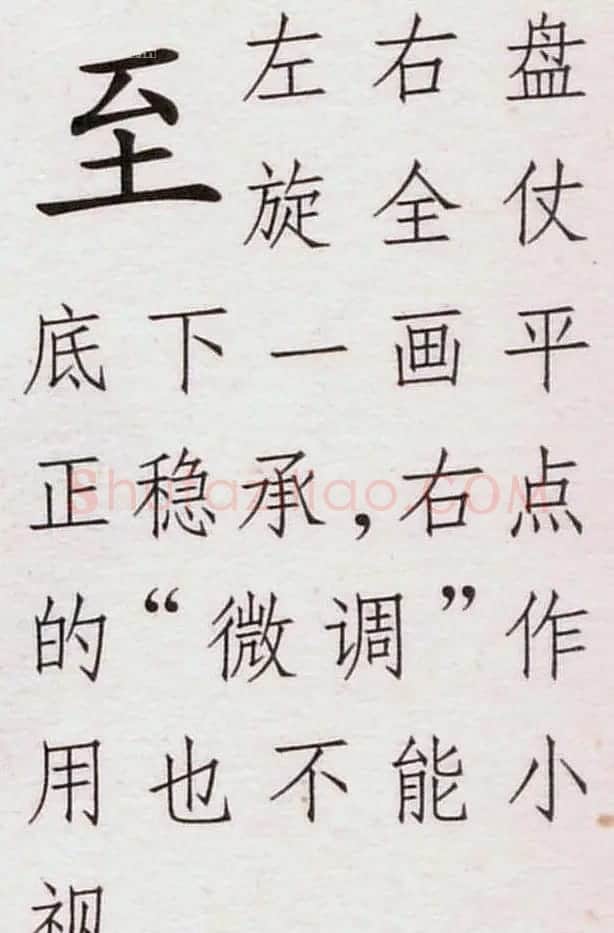 至
左右盘
旋全仗
底下一画平
正稳承，右点
的“微调”作
用也不能小
视